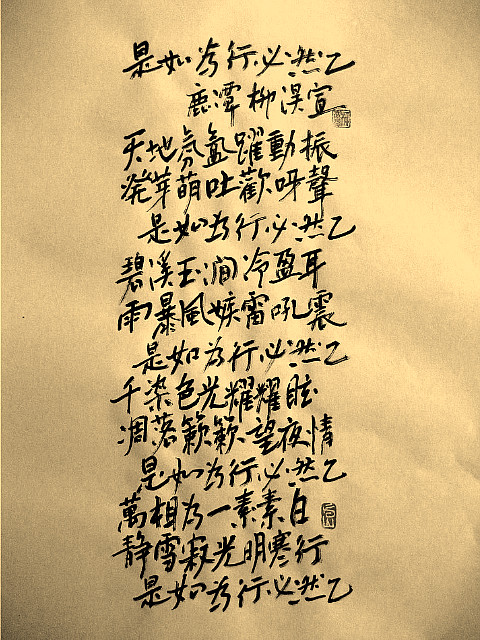 是如為行必然乙
鹿潭柳宣
天地氛氳躍動振
發芽萌吐歡呀聲
是如為行必然乙
碧溪玉澗冷盈耳
雨暴風嫉雷吼震
是如為行必然乙
千染色光耀耀眩
凋落簌簌望夜情
是如為行必然乙
萬相為一素素白
静雪寂光明寒行
是如為行必然乙